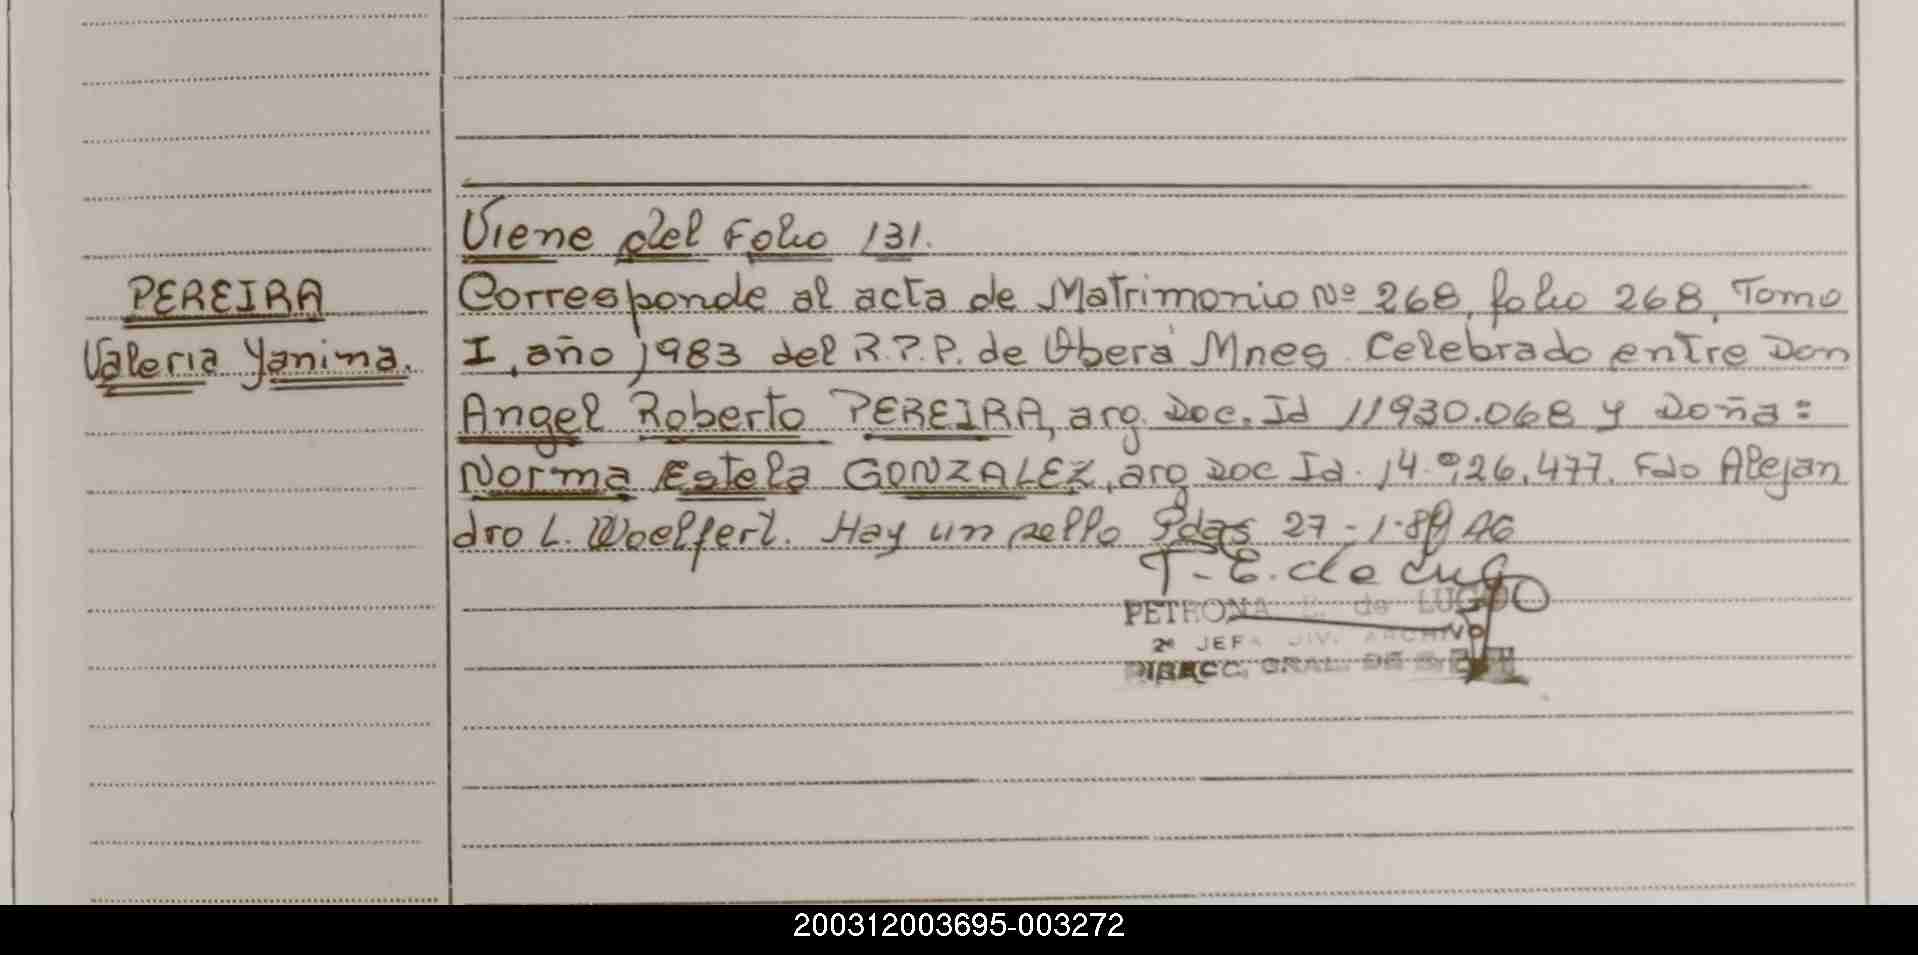 Viene del Folio 131.
PEREIRA
Corresponde al acta de Matrimonio Nº 268, folio 268, Tomo
Valeria Yanina.
I, año 1983 del R.P.P. de Oberá Mnes. Celebrado entre Don
Angel Roberto PEREIRA, arg. Doc. Id 11930.068 y Doña:
Norma Estela GONZALEZ, arg Doc Id. 14.926.477. Fdo Alejan
dro L. Woelfert. Hay un sello Pdas 27-1-89
PETRONA E. de LUGO
2º JEFA DIV. ARCHIVO
DIRECC. GRAL. DE
200312003695-003272